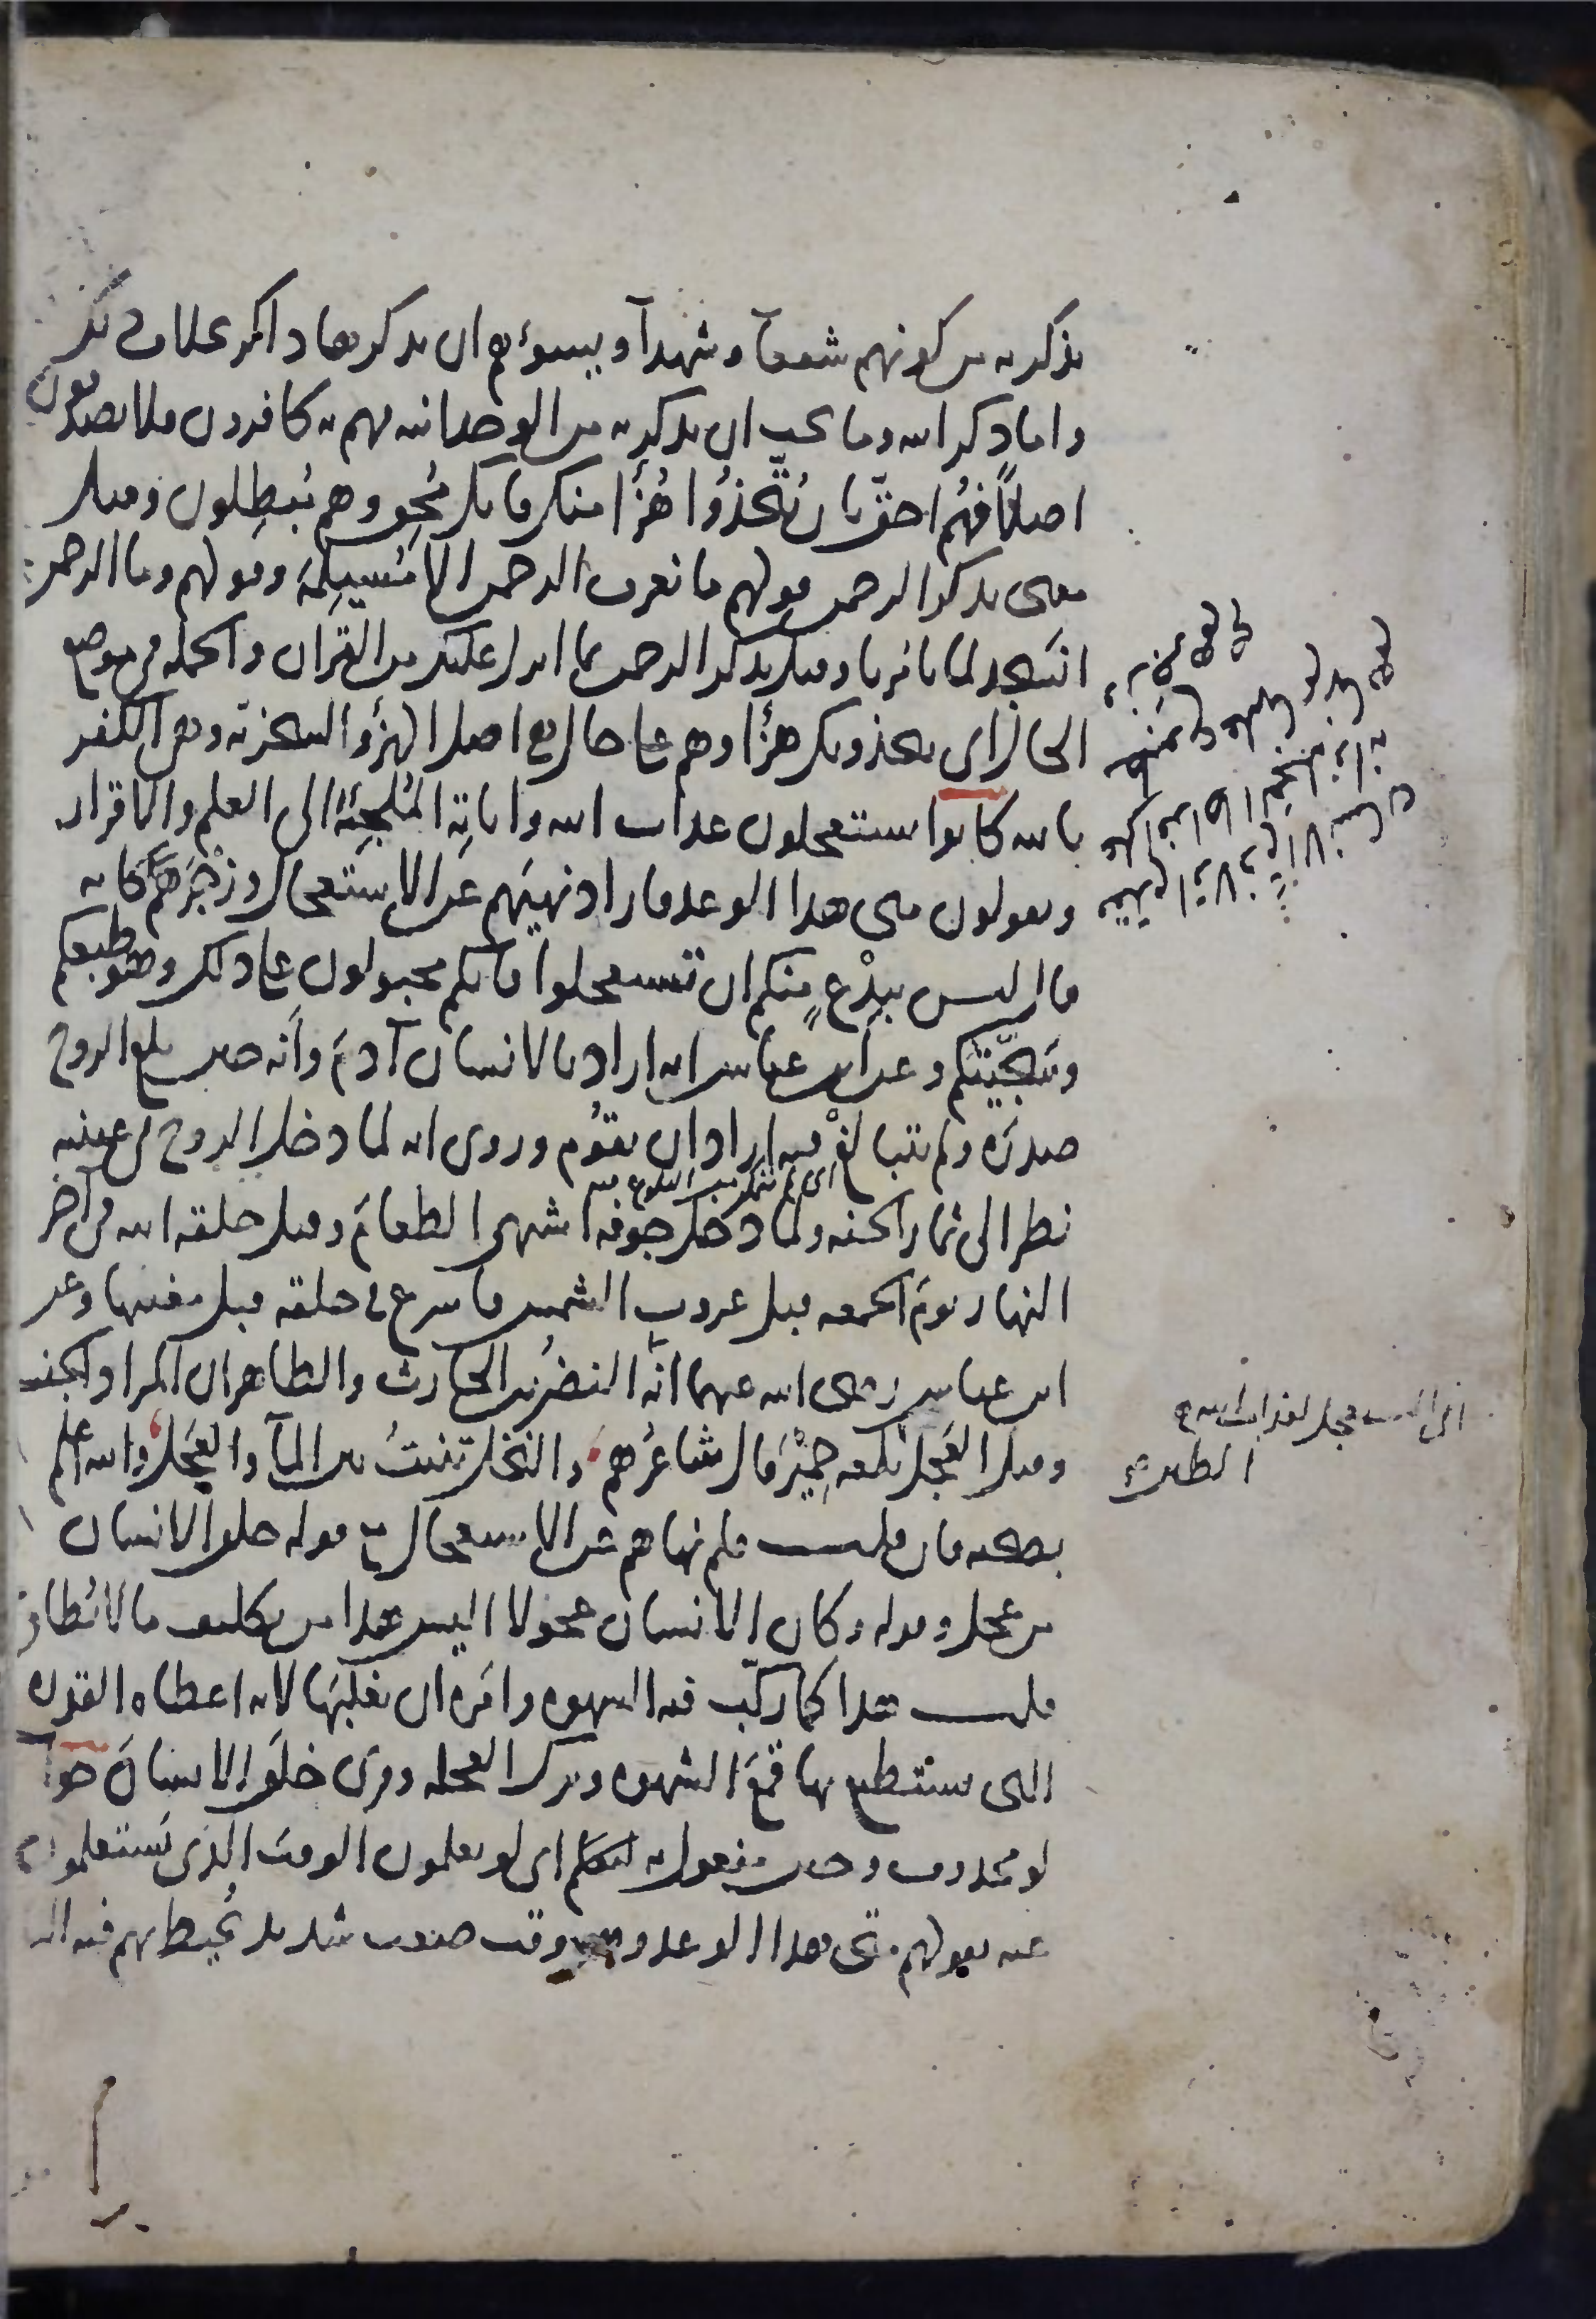 يذكر به من كونهم شفعآ وشهدآ ويسوءهم ان يذكرها ذاكر بخلاف ذلك
واما ذكر الله وما يجب ان يذكر به من الوحدانيه فهم به كافرون فلا يصدقون
اصلاً فهُم احقّ بان يُتّخذُوا هُزُأ منك فانك مُحِق وهم مُبطِلون وقيل
معنى بذكر الرحمن قولهم ما نعرف الرحمن الا مُسَيلِمَة وقولهم وما الرحمن
انسَجد لما تامُرنا وقيل بذكر الرحمن بما انزل عليك من القران والجمله في موضع
الحال اى يتخذونك هزُأ وهم على حال هى اصل الهزُؤ والسخريّه وهى الكفر
بالله كانوا يستعجلون عذاب الله واياتِه المُلجِئَة الى العلم والاقرار
ويقولون متى هذا الوعد فاراد نهيَهم عَن الاستعجال وزَجْرَهُم كانه
قال ليس ببِدْعٍ منكم ان تستعجلوا فانكم مجبولون على ذلك وهو طبعكم
وسَجيّتكم وعن ابن عباس انه اراد بالانسان آدمَ وأنه حين بلغ الروح
صدرَه ولم يتبالغْ فيه اراد ان يقوُم وروى انه لما دخل الروح فى عينيه
نظر الى ثمار الجنه ولما دخل جوفه اشتهى الطعامَ وقيل خلقه الله فى آخر
النهار يومَ الجمعه قبل غروبِ الشمس فاسرع فى خلقه قبل مغيبها وعن
ابن عباس رضى الله عنهما انّه النضرُ بن الحارث والظاهر ان المراد الجنس
وقيل العَجَل الطين بلغه حِمْيَر قال شاعرُهم والنخل تنبتُ بين المآ والعَجَل والله اعلم
بصحته فان قلت فلم نهاهم عن الاستعجال مع قوله خلق الانسان
من عجل وقوله وكان الانسان عجولا اليس هذا من تكليف ما لا يُطاق
قلت هذا كما ركّب فيه الشهوه وامَره ان يغلبَها لانه اعطاه القدره
التى يستطيع بها قمْعَ الشهوه وترك العجله وقرى خلَقَ الانسانَ جوابُ
لو محذوف وحين مفعول به ليعلم اى لو يعلمون الوقت الذى يَستعلمون
عنه بقولهم متى هذا الوعد وهو وقت صعب شديد تُحيط بهم فيه النار
اى لم يتمكن من البلوغ فيه
الطين